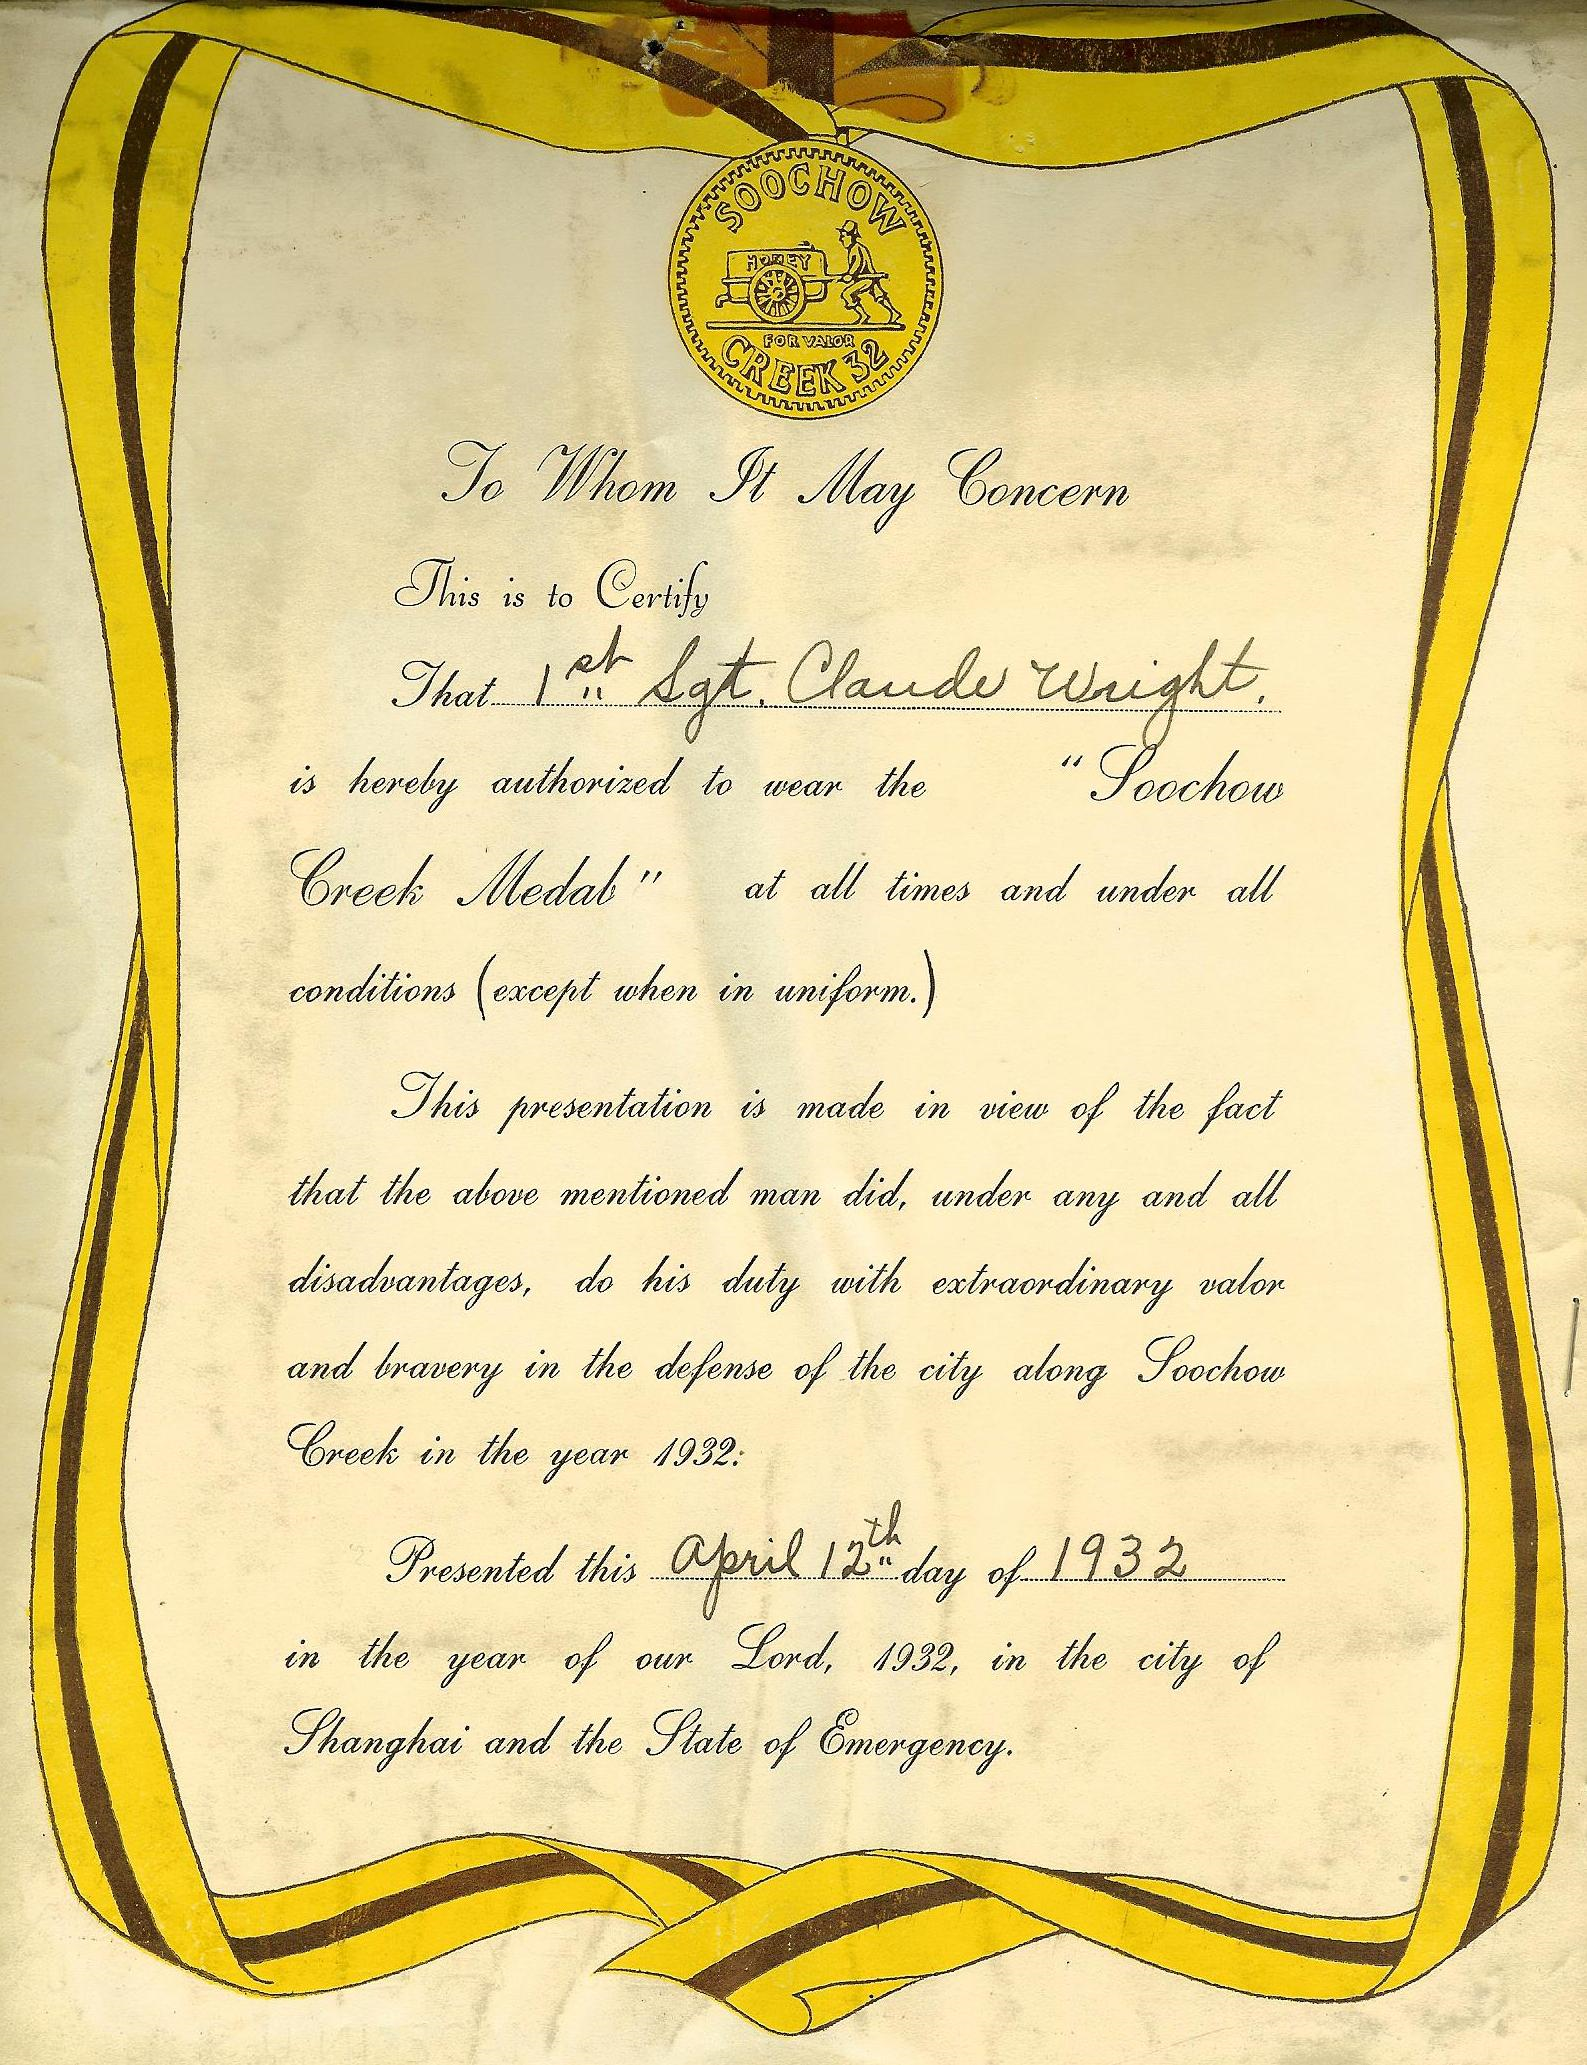 SOOCHOW
HONEY
FOR VALOR
CREEK 32
To Whom It May Concern
This is to Certify
That 1st Sgt. Claude Wright.
is hereby authorized to wear the "Soochow
Creek Medal" at all times and under all
conditions (except when in uniform.)
This presentation is made in view of the fact
that the above mentioned man did, under any and all
disadvantages, do his duty with extraordinary valor
and bravery in the defense of the city along Soochow
Creek in the year 1932:
Presented this April 12th day of 1932
in the year of our Lord, 1932, in the city of
Shanghai and the State of Emergency.